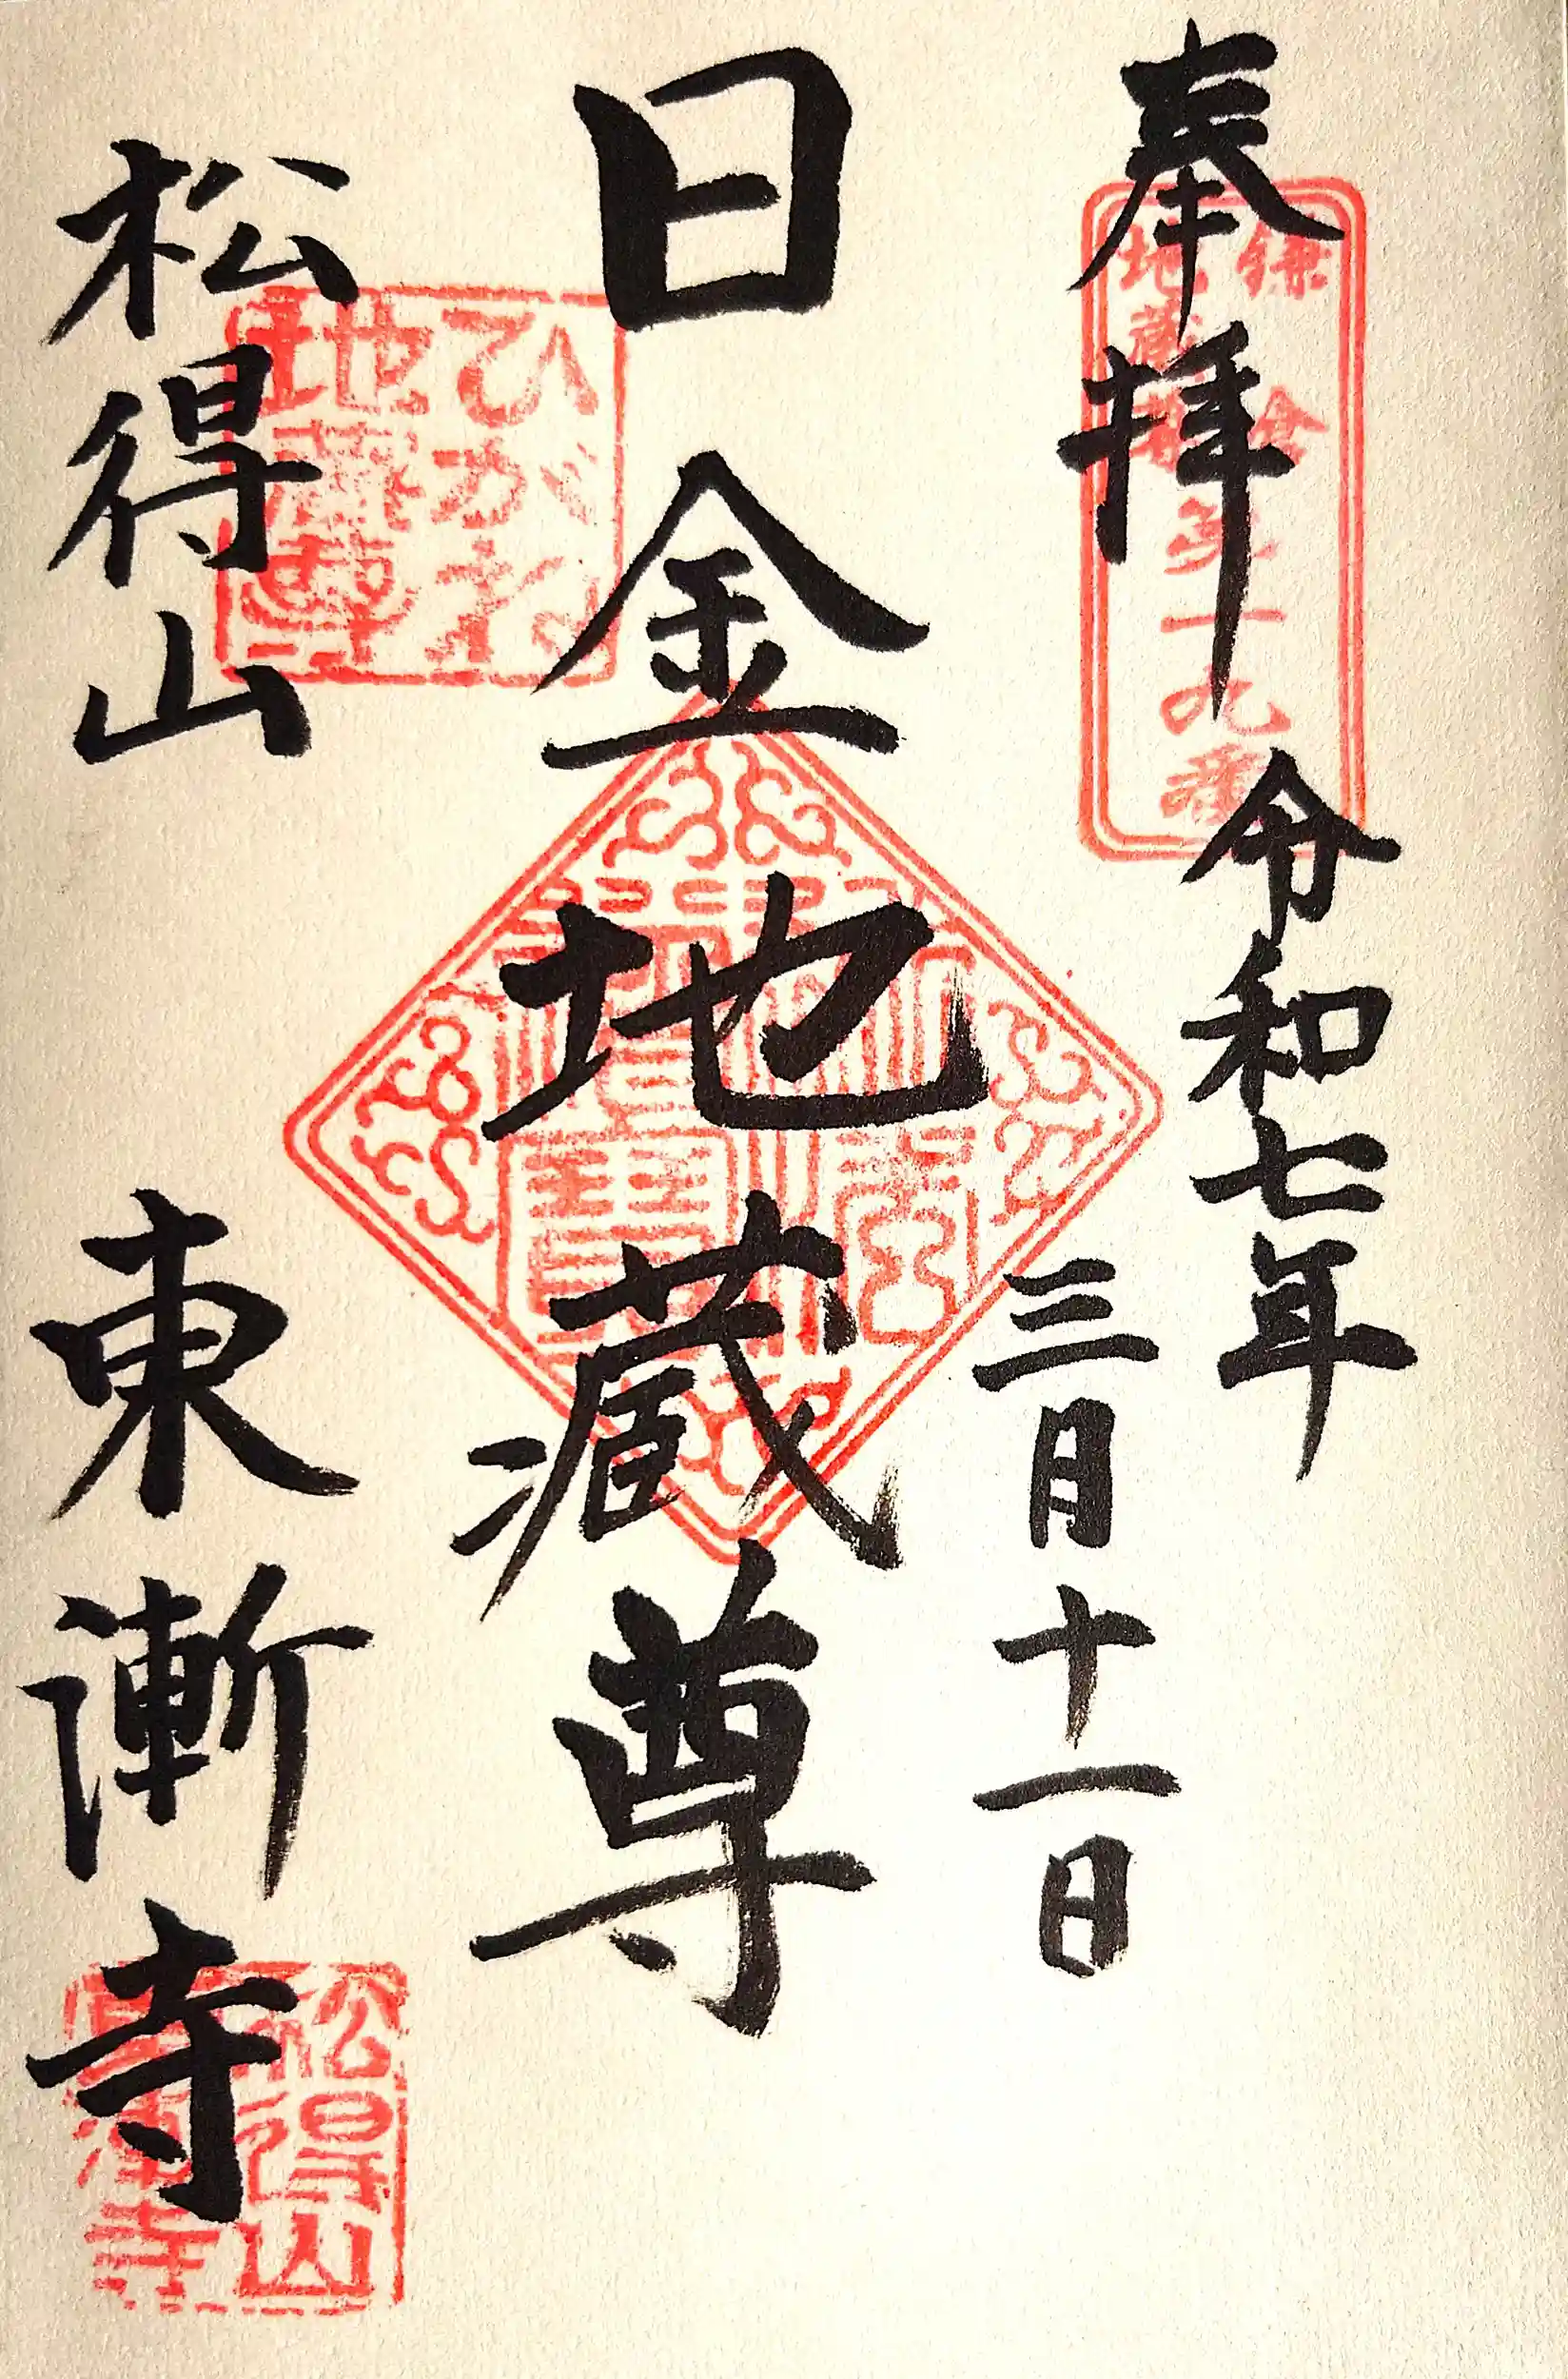 奉拝
令和七年
三月十一日
日金地蔵尊
松得山
東漸寺
鎌倉
地蔵
第十九番
ひがね
地蔵尊
佛法僧寶
松得山
東漸寺